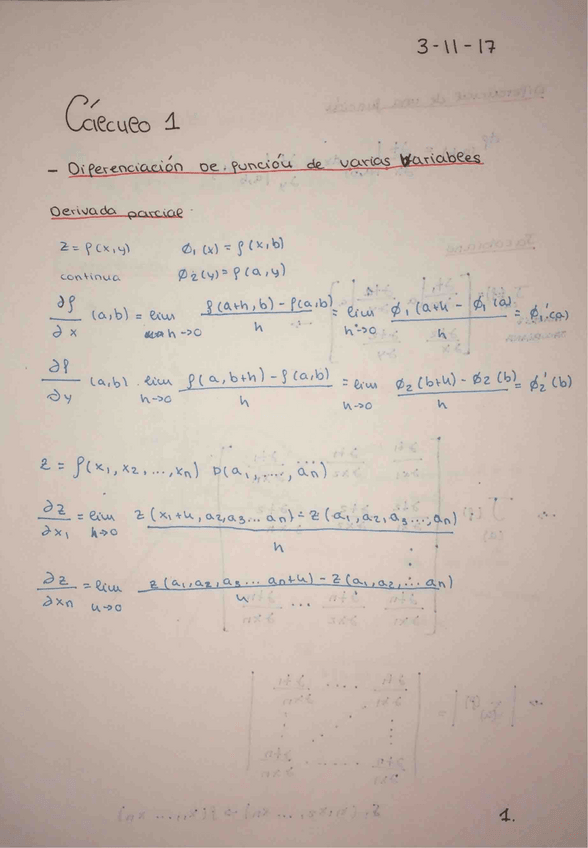 3-11-17
Cálculo 1
- Diferenciación de función de varias variables
Derivada parcial
z = f(x,y) ϕ₁(x) = f(x,b)
continua ϕ₂(y) = f(a,y)
∂f/∂x (a,b) = lim h→0 (f(a+h,b) - f(a,b))/h = lim h→0 (ϕ₁(a+h - ϕ₁(a))/h = ϕ₁'(a)
∂f/∂y (a,b) lim h→0 (f(a,b+h) - f(a,b))/h = lim h→0 (ϕ₂(b+h) - ϕ₂(b))/h = ϕ₂'(b)
z = f(x₁,x₂,...,xn) p(a₁,...,an)
∂z/∂x₁ = lim h→0 (z(x₁+h,a₂,a₃...an) - z(a₁,a₂,a₃...,an))/h
∂z/∂xn = lim h→0 (z(a₁,a₂,a₃...an+h) - z(a₁,a₂,...an))/h
1.